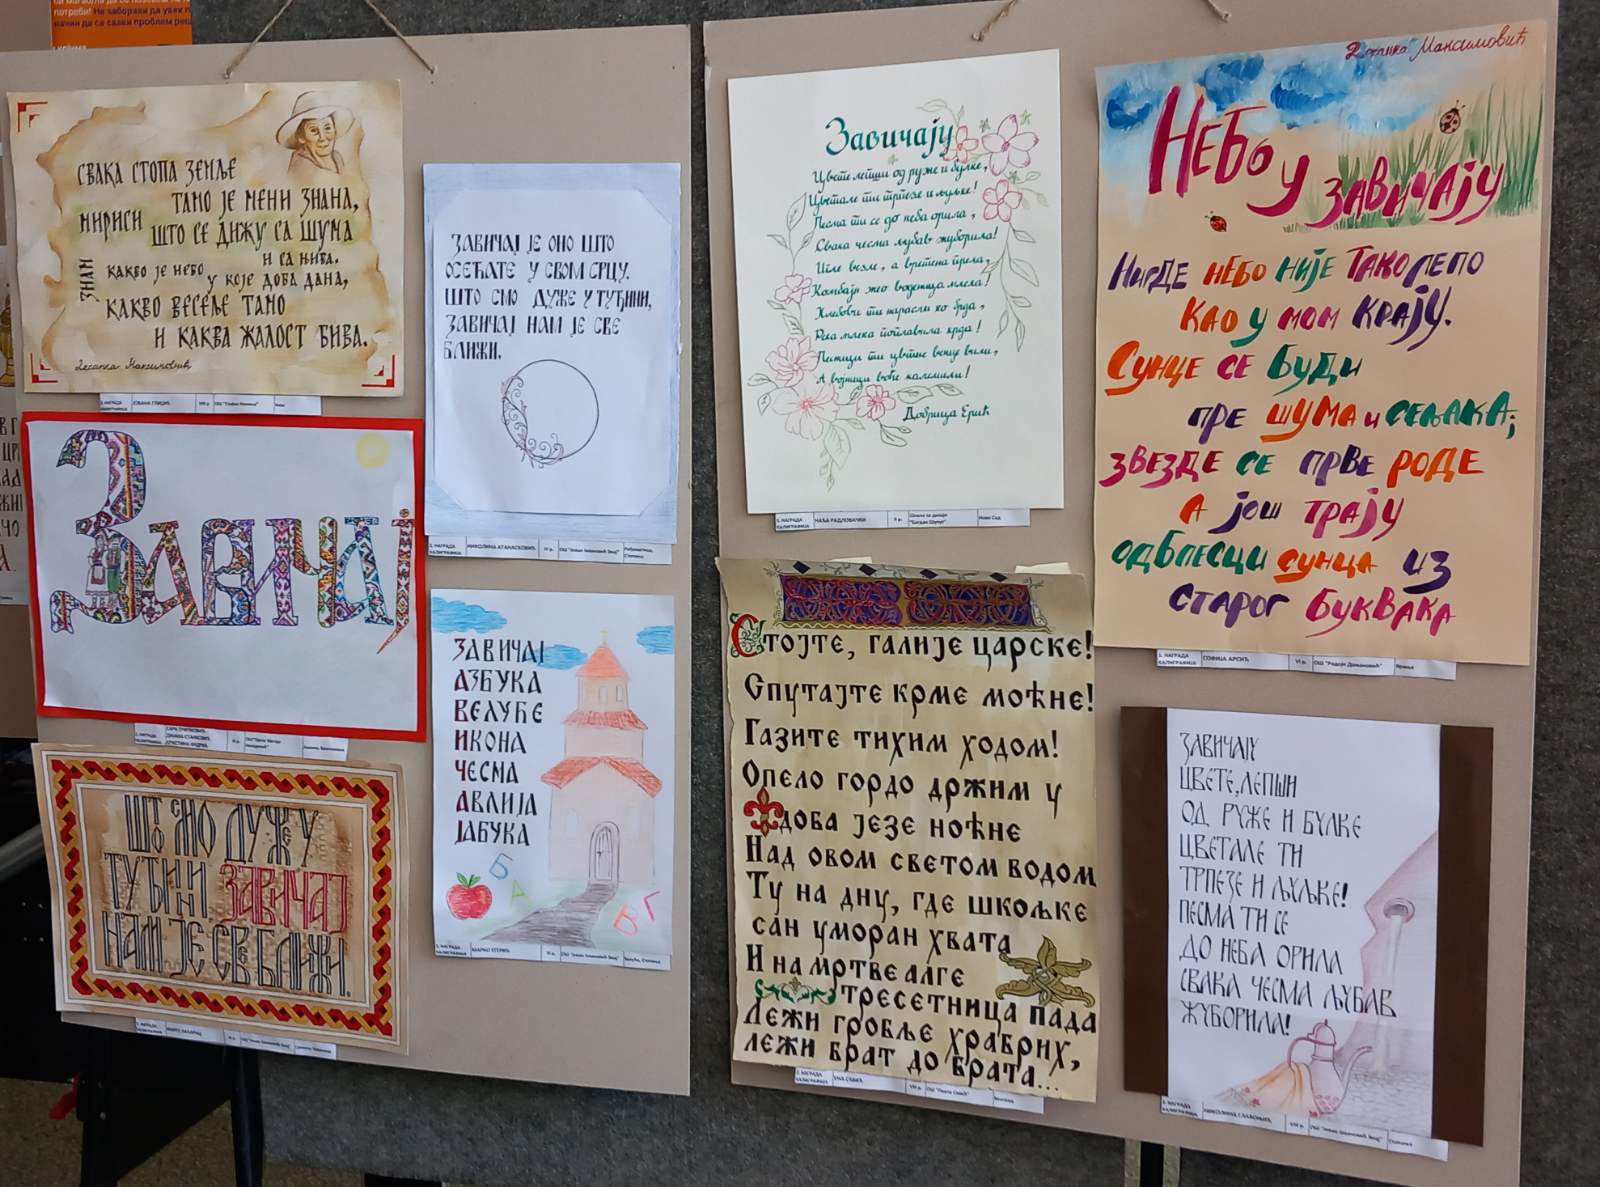 потреби! Не заборави да увек
начин да се сваки проблем
СВАКА СТОПА ЗЕМЉЕ
ТАМО ЈЕ МЕНИ ЗНАНА,
МИРИСИ
ШТО СЕ ДИЖУ СА ШУМА
И СА ЊИВА.
ЗНАМ
КАКВО ЈЕ НЕБО
У КОЈЕ ДОБА ДАНА,
КАКВО ВЕСЕЉЕ ТАМО
И КАКВА ЖАЛОСТ БИВА.
Десанка Максимовић
ЗАВИЧАЈ
ШТО СМО ДУЖЕ У
ТУЂИНИ ЗАВИЧАЈ
НАМ ЈЕ СВЕ БЛИЖИ.
ЗАВИЧАЈ ЈЕ ОНО ШТО
ОСЕЋАТЕ У СВОМ СРЦУ.
ШТО СМО ДУЖЕ У ТУЂИНИ,
ЗАВИЧАЈ НАМ ЈЕ СВЕ
БЛИЖИ.
3. НАГРАДА
КАЛИГРАФИЈА
НИКОЛИНА АТАНАСКОВИЋ
ЗАВИЧАЈ
АЗБУКА
ВЕЛУЋЕ
ИКОНА
ЧЕСМА
АВЛИЈА
ЈАБУКА
Б
А
В
Г
Завичају
Цвете лепши од руже и булке,
Цветале ти трпезе и љуљке!
Песма ти се до неба орила,
Свака чесма љубав жуборила!
Игле везле, а вретена прела,
Комбајн жео воденица млела!
Хлебови ти нарасли ко брда,
Река млека поплавила крда!
Пчелици ти цветне венце вили,
А војници воће калемили!
Добрица Ерић
3. НАГРАДА
КАЛИГРАФИЈА
НАЂА РАДЛОВАЧКИ
Нови Сад
Стојте, галије царске!
Спутајте крме моћне!
Газите тихим ходом!
Опело гордо држим у
доба језе ноћне
Над овом светом водом
Ту на дну, где шкољке
сан уморан хвата
И на мртве алге
тресетница пада
Лежи гробље храбрих,
лежи брат до брата...
Десанка Максимовић
НЕБО У
ЗАВИЧАЈУ
НИГДЕ НЕБО НИЈЕ ТАКО ЛЕПО
КАО У МОМ КРАЈУ.
СУНЦЕ СЕ БУДИ
ПРЕ ШУМА И СЕЉАКА;
ЗВЕЗДЕ СЕ ПРВЕ РОДЕ
А ЈОШ ТРАЈУ
ОДБЛЕСЦИ СУНЦА ИЗ
СТАРОГ БУКВАРА
СОФИЈА АРСИЋ
VI р.
ОШ "Радоје Домановић"
Врање
ЗАВИЧАЈУ
ЦВЕТЕ, ЛЕПШИ
ОД РУЖЕ И БУЛКЕ
ЦВЕТАЛЕ ТИ
ТРПЕЗЕ И ЉУЉКЕ!
ПЕСМА ТИ СЕ
ДО НЕБА ОРИЛА
СВАКА ЧЕСМА ЉУБАВ
ЖУБОРИЛА!